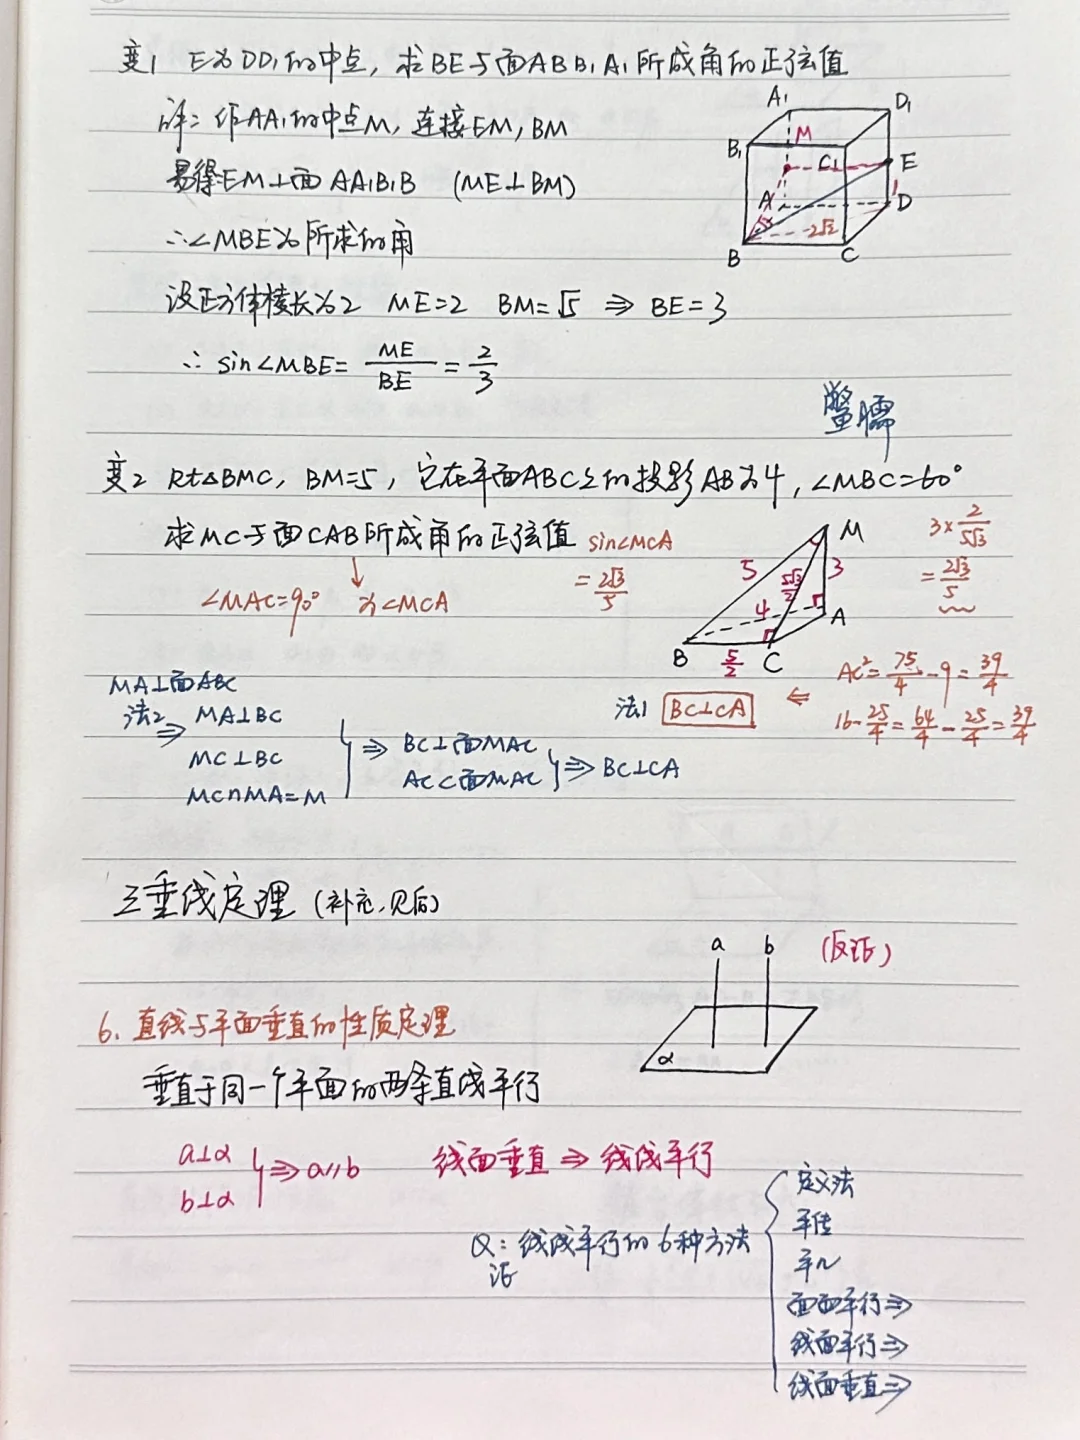 变1 E为DD₁的中点，求BE与面ABB₁A₁所成角的正弦值
详：作AA₁的中点M，连接EM，BM
易得EM⊥面AA₁B₁B (ME⊥BM)
∴∠MBE为所求的角
设正方体棱长为2 ME=2 BM=√5 ⇒ BE=3
∴ sin∠MBE= ME/BE = 2/3
A₁ D₁
B₁ M C₁ E
A D 1
√5 2√2
B C
鳖臑
变2 Rt△BMC，BM=5，它在平面ABC上的投影AB为4，∠MBC=60°
求MC与面CAB所成角的正弦值 sin∠MCA
= 2√3/5
∠MAC=90° 为∠MCA
M
5 5√3/2 3
4 A
B 5/2 C
3× 2/5√3
= 2√3/5
AC²= 75/4 -9 = 39/4
16- 25/4 = 64/4 - 25/4 = 39/4
法1 BC⊥CA ⇐
MA⊥面ABC
法2 ⇒ MA⊥BC
MC⊥BC
MC∩MA=M
} ⇒ BC⊥面MAC
AC⊂面MAC } ⇒ BC⊥CA
三垂线定理 (补充，见后)
a b (反证)
α
6. 直线与平面垂直的性质定理
垂直于同一个平面的两条直线平行
a⊥α
b⊥α } ⇒ a//b 线面垂直 ⇒ 线线平行
Q：证线线平行的6种方法
定义法
平传
平几
面面平行⇒
线面平行⇒
线面垂直⇒